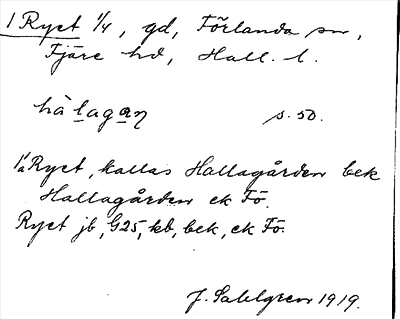 1 Ryet 1/4, gd, Förlanda sn,
Fjäre hd, Hall. l.
hàlagan s. 50.
1/2 Ryet, kallas Hallagården bek
Hallagården ek Fö.
Ryet jb, G25, kb, bek, ek Fö.
J. Sahlgren 1919.